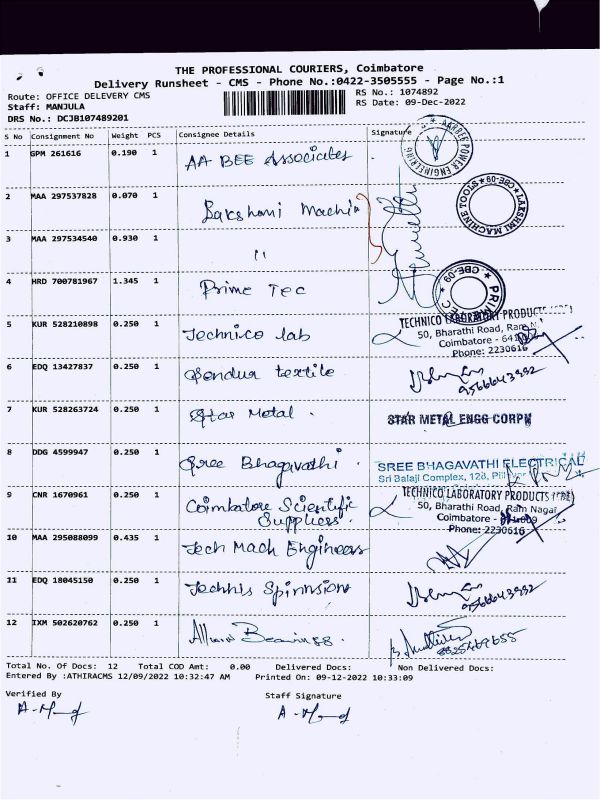 THE PROFESSIONAL COURIERS, Coimbatore
Delivery Runsheet - CMS - Phone No.:0422-3505555 - Page No.:1
Route: OFFICE DELEVERY CMS
RS No.: 1074892
Staff: MANJULA
RS Date: 09-Dec-2022
DRS No.: DCJB107489201
S No Consignment No Weight PCS Consignee Details Signature
1 GPM 261616 0.190 1 AA BEE Associates
AARBEE POWER ENGINEERING
2 MAA 297537828 0.070 1 Lakshmi Machin
LAKSHMI MACHINE TOOLS CBE-09
3 MAA 297534540 0.930 1 "
4 HRD 700781967 1.345 1 Prime Tec
PRIME TEC CBE-09
5 KUR 528210898 0.250 1 Technico lab
TECHNICO LABORATORY PRODUCTS
50, Bharathi Road, Ram
Coimbatore -
Phone: 2230616
6 EDQ 13427837 0.250 1 Sendur textile
9566643992
7 KUR 528263724 0.250 1 Star Metal .
STAR METAL ENGG CORPN
8 DDG 4599947 0.250 1 Sree Bhagavathi .
SREE BHAGAVATHI ELECTRICAL
Sri Balaji Complex, 128,
9 CNR 1670961 0.250 1 Coimbatore Scientific
Suppliers.
TECHNICO LABORATORY PRODUCTS
50, Bharathi Road, Ram Nagar
Coimbatore -
Phone: 2230616
10 MAA 295088099 0.435 1 Tech Mach Engineers
11 EDQ 18045150 0.250 1
9566643992
12 IXM 502620762 0.250 1
Total No. Of Docs: 12 Total COD Amt: 0.00 Delivered Docs: Non Delivered Docs:
Entered By :ATHIRACMS 12/09/2022 10:32:47 AM Printed On: 09-12-2022 10:33:09
Verified By Staff Signature